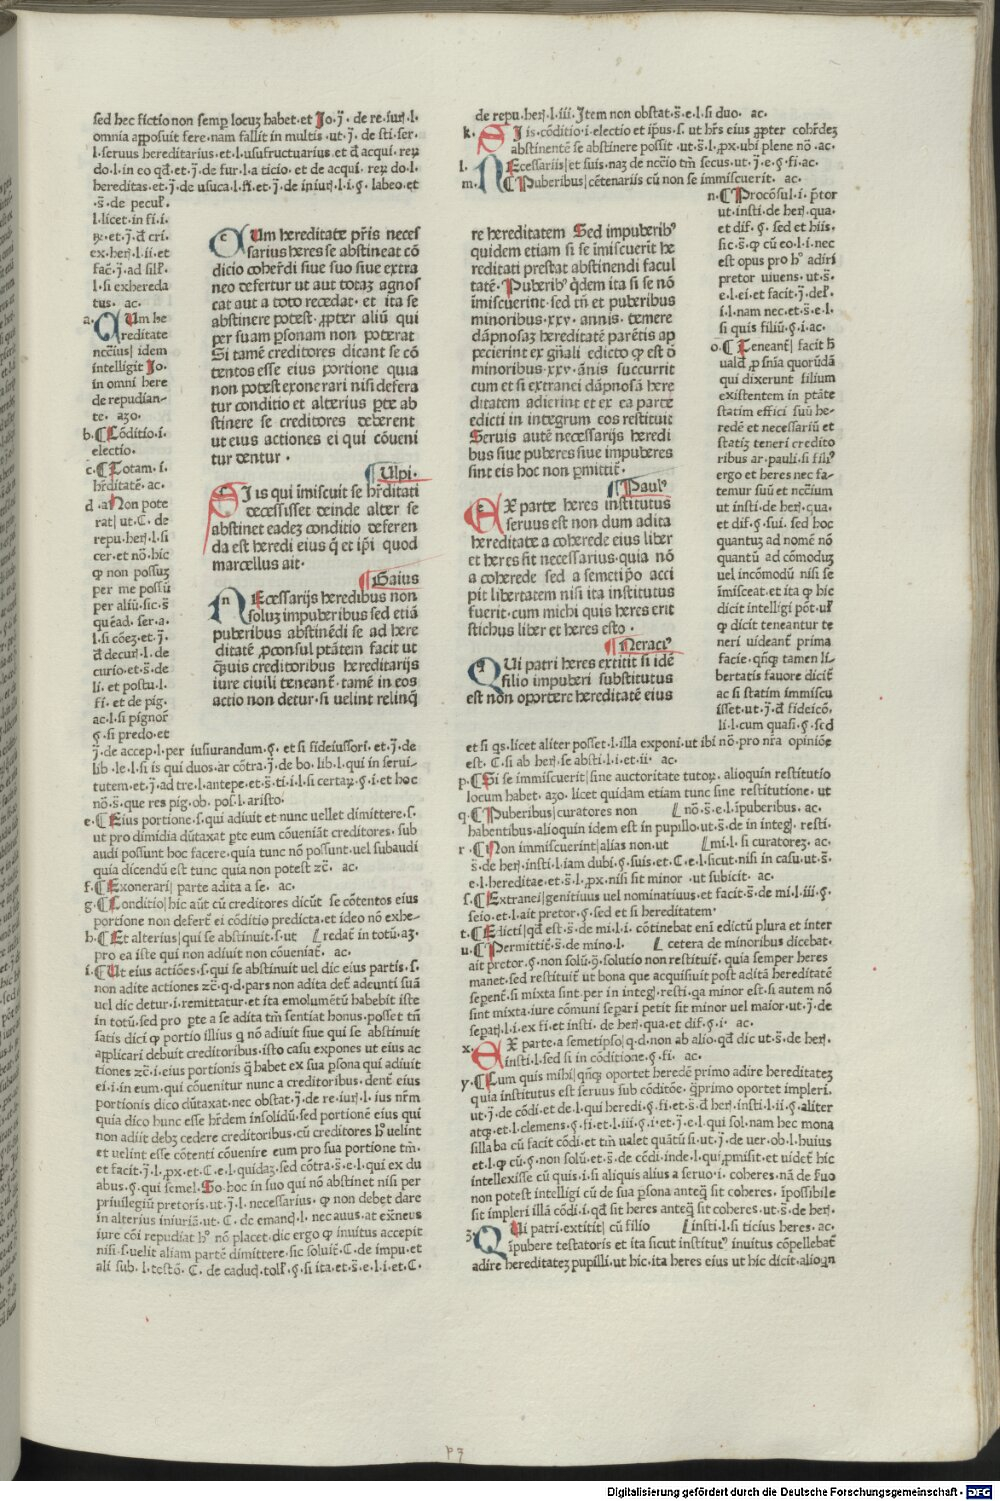 sed hec fictio non semp locuʒ habet· et Jo·ꝟ· de re·iur·l·
omnia apposuit fere·nam fallit in multis·ut·ꝟ· de sti·ser·
l·seruus hereditarius·et·l·usufructuarius·et đ acqui·rerū
do·l·in eo qđ·et·ꝟ·de fur·l·a ticio·et de acqui·reꝝ do·l·
hereditas·et·ꝟ·de usuca·l·fi·et·ꝟ·de iniur·l·i·ꝯ·labeo·et
·s̄·de pecul·
l·licet·in fi·i·
ex·her·l·ii·et
l·si exhereda
tus· ac·
a·Cum he
reditate
idem
intelligit Jo·
in omni here
de repudian-
te· azo·
b·Cōditio·i·
electio·
c·Totam·i·
hr̄ditatē· ac·
d·a·Non pote
rat| ut·C· de
repu·her·l·si
cer·et nō·hic
ꝙ non possuʒ
per me possū
per aliū·sic·s̄
l·si cōeʒ·et·ꝟ·
đ decur·l·de
curio·et·s̄·de
li· et postu·l·
fi· et de pig·
ac·l·si pignor̄
ꝯ·si predo·et
Cum hereditate pr̄is neces
sarius heres se abstineat cō
dicio coherđi siue suo siue extra
neo defertur ut aut totaʒ agnos
cat aut a toto recedat· et ita se
abstinere potest ꝓpter aliū qui
per suam ꝑsonam non poterat
Si tamē creditores dicant se cō
tentos esse eius portione quia
non potest exonerari nisi defera
tur conditio et alterius ꝑte ab
stinere se creditores debebunt
ut eius actiones ei qui cōueni
tur dentur ·
Ulpi·
SI is qui īmiscuit se hr̄ditati
decessisset deinde alter se
abstinet eadeʒ conditio deferen
da est heredi eius q̄ et ip̄i quod
marcellus ait·
Gaius
NEcessarijs heredibus non
soluʒ impuberibus sed etiā
puberibus abstinēdi se ad here
ditatē ꝓconsul ptātem facit ut
q̄uis creditoribus hereditarijs
iure ciuili teneant̄· tamē in eos
actio non detur·si uelint relinq̄
ꝟ·de accep·l·per iusiurandum·ꝯ· et si fideiussori·et·ꝟ·de
lib·le·l·si is qui duos·ar cōtra·ꝟ·de bo·lib·l·qui in serui-
tutem·et·ꝟ·ad tre·l·antepe·et·s̄·ti·i·l·si certaꝝ·ꝯ·i·et hoc
nō·s̄·que res pig·ob·pos·l·aristo·
e·Eius portione·s·qui adiuit et nunc uellet dimittere·s·
ut pro dimidia dūtaxat ꝑte eum cōueniāt creditores·sub
audi possunt hoc facere·quia tunc nō possunt·uel subaudi
quia dicendū est tunc quia non potest zc̄· ac·
f·Exonerari| parte adita a se· ac·
g·Conditio| hic aūt cū creditores dicūt se cōtentos eius
portione non defert̄ ei cōditio predicta·et ideo nō exhe-
h·Et alterius| qui se abstinuit·s·ut redat̄ in totū·aʒ·
pro ea iste qui non adiuit non cōueniat̄· ac·
i·Ut eius actiōes·s·qui se abstinuit uel dic eius partis·s·
non adite actiones zc̄·q·d·pars non adita det̄ adeunti suā
uel dic detur·i·remittatur·et ita emolumētū habebit iste
in totū·sed pro ꝑte a se adita tm̄ sentiat honus·posset tn̄
satis dici ꝙ portio illius q nō adiuit siue qui se abstinuit
applicari debuit creditoribus·isto casu expones ut eius ac
tiones zc̄·i·eius portionis q̄ habet ex sua ꝑsona qui adiuit
ei·i·in eum·qui cōuenitur nunc a creditoribus·dent̄ eius
portionis dico dūtaxat·nec obstat·ꝟ·de re·iur·l·ius nr̄m
quia dico hunc esse hr̄dem insolidū·sed portionē eius qui
non adiit debʒ cedere creditoribus·cū creditores hꝰ uelint
et uelint esse cōtenti cōuenire eum pro sua portione tm̄·
et facit·ꝟ·l·ꝓx·et·C·e·l·quidaʒ·sed cōtra·s̄·e·l·qui ex du
abus·ꝯ·qui semel·So·hoc in suo qui nō abstinet nisi per
priuilegiū pretoris·ut·ꝟ·l·necessarius· ꝙ non debet dare
in alterius iniuriā·ut·C·de emancꝑ·l·nec auus·at extr̄neus
iure cōi repudiat hꝰ nō placet·dic ergo ꝙ inuitus accepit
nisi·s·uelit aliam partē dimittere·sic soluit̄·C·de impu·et
ali sub·l·testō·C·de caduc·toll·ꝯ·si ita·et·s̄·e·l·i·et·C·
de repu·her·l·iii·Item non obstat·s̄·e·l·si duo· ac·
k·SI is·cōditio·i·electio et ip̄ius·s·ut hr̄s eius ꝓpter cohr̄deʒ
abstinentē se abstinere possit·ut·s̄·l·ꝓx·ubi plene nō· ac·
l·NEcessariis| et suis·naʒ de nccīo tm̄ secus·ut·ꝟ·e·ꝯ·fi·ac·
m·Puberibus| cētenariis cū non se immiscuerit· ac·
re hereditatem Sed impuberibꝰ
quidem etiam si se īmiscuerit he
reditati prestat abstinendi facul
tatē·Puberibꝰ q̄dem ita si se nō
īmiscuerint·sed tn̄ et puberibus
minoribus·xxv· annis· temere
dāpnosaʒ hereditatē parētis ap
pecierint ex gn̄ali edicto ꝙ est ō
minoribus·xxv·ānis succurrit
cum et si extranei dāpnosā here
ditatem adierint et ex ea parte
edicti in integrum eos restituit
Seruis autē necessarijs heredi
bus siue puberes siue impuberes
sint eis hoc non ꝑmittit̄·
Paulꝰ
EX parte heres institutus
seruus est non dum adita
hereditate a coherede eius liber
et heres fit necessarius·quia nō
a coherede sed a semetip̄o acci
pit libertatem nisi ita institutus
fuerit·cum michi quis heres erit
stichus liber et heres esto ·
Neraciꝰ
QUi patri heres extitit si idē
filio impuberi substitutus
est non oportere hereditatē eius
n·Procōsul·i·pr̄tor
ut·insti·de her·qua·
et dif·ꝯ·sed et hiis·
sic·s̄·ꝙ cū eo·l·i·nec
est opus pro hꝰ adiri
pretor uiuens·ut·s̄·
e·l·ei·et facit·ꝟ·del·
i·l·nam nec·et·s̄·e·l·
si quis filiū·ꝯ·i·ac·
o·Teneant̄| facit hꝰ
uald ꝓ snīa quorūdā
qui dixerunt filium
existentem in ptāte
statim effici suū he-
redē et necessariū et
statiʒ teneri credito
ribus ar·pauli·si filiꝰ
ergo et heres nec fa-
temur suū et nccīum
ut insti·de her·qua·
et dif·ꝯ·sui·sed hoc
quantuʒ ad nomē nō
quantū ad cōmoduʒ
uel incōmodū nisi se
īmisceat·et ita ꝙ hic
dicit intelligi pōt·ul
ꝙ dicit teneantur te
neri uideant̄ prima
facie·qn̄ꝙ tamen li-
bertatis fauore dicit̄
ac si statim immiscu
isset·ut·ꝟ·đ fideicō·
li·l·cum quasi·ꝯ·sed
et si qs·licet aliter posset·l·illa exponi·ut ibi nō·pro nr̄a opiniōe
est·C·si ab her·se absti·l·i·et·ii· ac·
p·Si se immiscuerit| sine auctoritate tutoꝝ·alioquin restitutio
locum habet·azo·licet quidam etiam tunc sine restitutione·ut
q·Puberibus| curatores non nō·s̄·e·l·īpuberibus·ac·
habentibus·alioquin idem est in pupillo·ut·s̄·de in integ·resti·
r·Non immiscuerint| alias non·ut mi·l·si curatoreʒ·ac·
s̄·de her·insti·l·iam dubi·ꝯ·suis·et·C·e·l·sicut·nisi in casu·ut·s̄·
e·l·hereditae·et·s̄·l·ꝓx·nisi sit minor·ut subicit· ac·
s·Extranei| genitiuus uel nominatiuus·et facit·s̄·de mi·l·iii·ꝯ·
seio·et·l·ait pretor·ꝯ·sed et si hereditatem·
t·Edicti| qđ est·s̄·de mi·l·i·cōtinebat eni edictū plura et inter
u·Permittit̄·s̄·de mino·l· cetera de minoribus dicebat·
ait pretor·ꝯ·non solū·ꝙ·solutio non restituit̄·quia semper heres
manet·sed restituit̄ ut bona que acquisiuit post aditā hereditatē
sepent̄·si mixta sint·per in integ·resti·qa minor est·si autem nō
sint mixta·iure cōmuni separi petit sit minor uel maior·ut·ꝟ·de
separ·l·i·ex fi·et insti·de her·qua·et dif·ꝯ·i· ac·
x·EX parte·a semetipso| q·d·non ab alio·qđ dic ut·s̄·de her·
insti·l·sed si in cōditione·ꝯ·fi· ac·
y·Cum quis mihi| qn̄ꝙ oportet heredē primo adire hereditateʒ
quia institutus est seruus sub cōditōe·q̄primo oportet impleri·
ut·ꝟ·de cōdi·et de·l·qui heredi·ꝯ·fi·et·s̄·đ her·insti·l·ii·ꝯ·aliter
atꝙ·et·l·clemens·ꝯ·fi·et·l·iii·ꝯ·i·et·ꝟ·e·l·qui sol·nam hec mona
sillaba cū facit cōdi·et tm̄ ualet quātū si·ut·ꝟ·de uer·ob·l·huius
et·l·ꝙ cū·ꝯ·non solū·et·s̄·de cōdi·inde·l·qui ꝓmisit·et uidet̄ hic
intellexisse cū quis·i·si aliquis alius a seruo·i·coheres·nā de suo
non potest intelligi cū de sua ꝑsona anteq̄ sit coheres·īpossibile
sit impleri illā cōdi·i·qđ sit heres anteq̄ sit coheres·ut·s̄·de her·
ʒ·QUi patri·extitit| cū filio insti·l·si ticius heres·ac·
īpubere testatoris et ita sicut institutꝰ inuitus cōpellebat̄
adire hereditateʒ pupilli·ut hic·ita heres eius ut hic dicit·alioqn
Digitalisierung gefördert durch die Deutsche Forschungsgemeinschaft - DFG